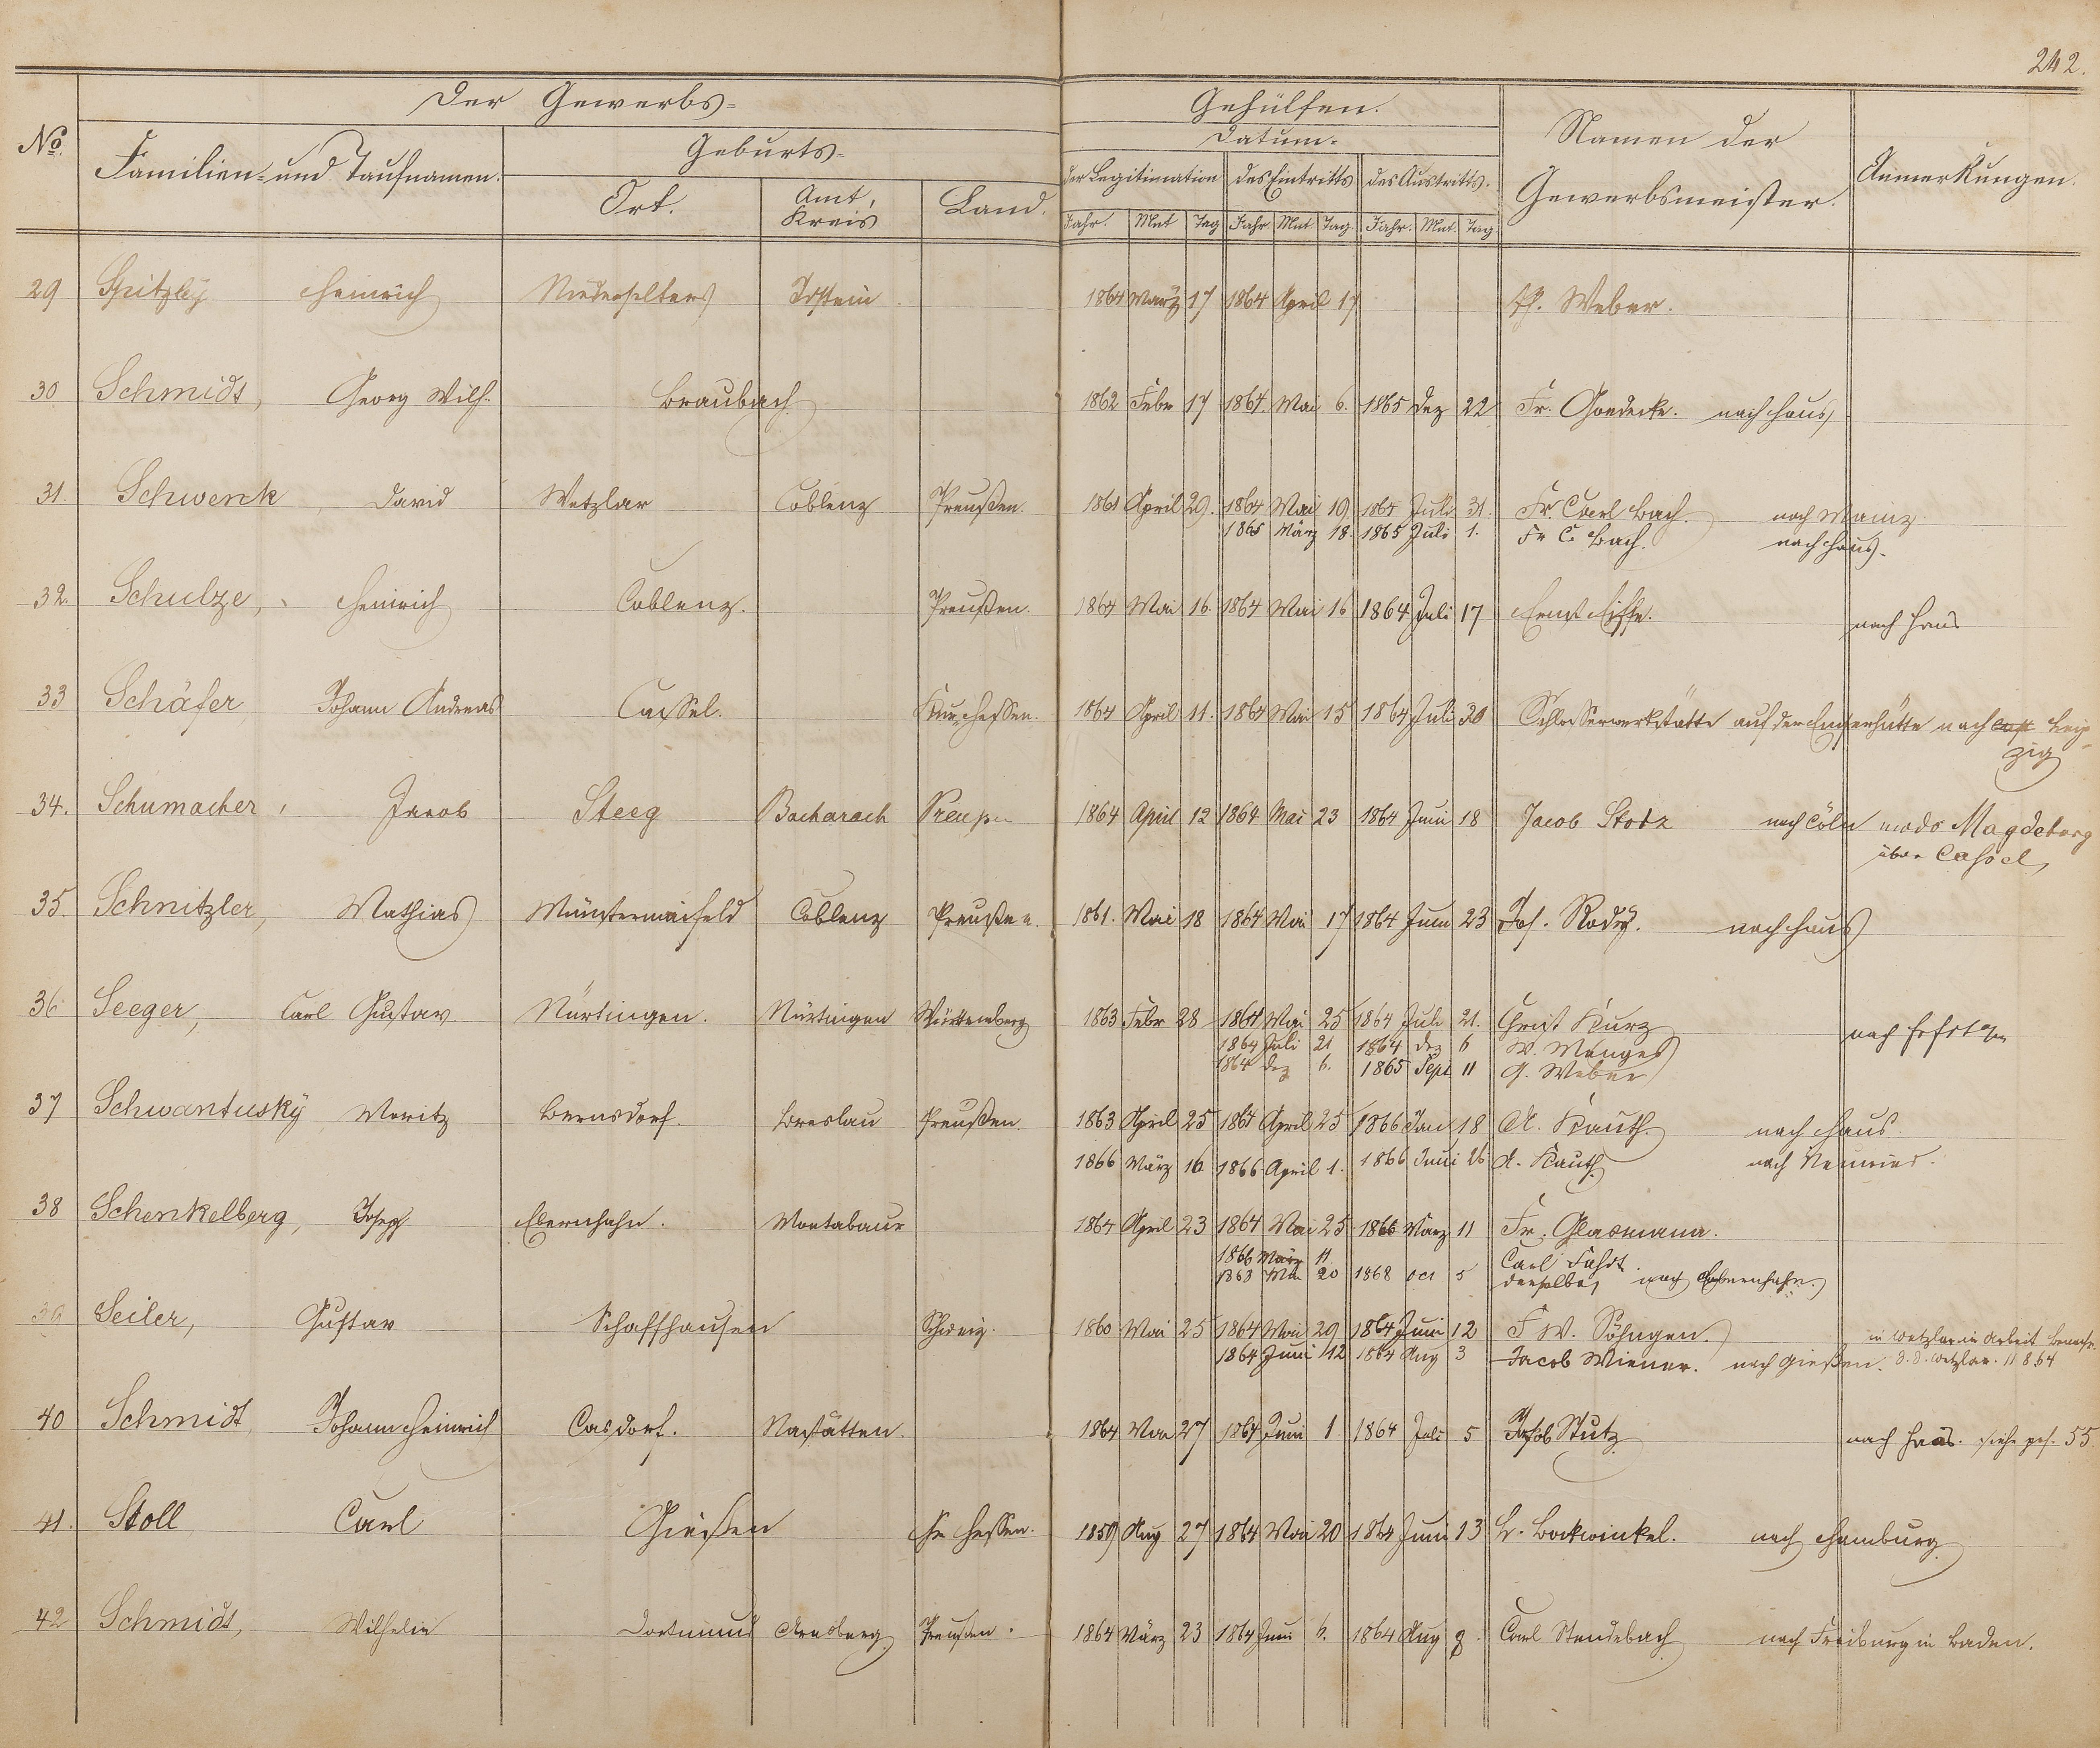 242.
Der Gewerbs-
Gehülfen.
No.
Familien- und Taufnamen.
Geburts-
Datum.
Namen der
Gewerbsmeister.
Anmerkungen.
Ort.
Amt,
Kreis
Land.
der Legitimation
des Eintritts
des Austritts.
Jahr. Mnt Tag Jahr Mnt Tag Jahr. Mnt. Tag
29 Heinrich Niederselters Idstein 1864 März 17 1864 April 17 Weber.
30 Schmidt, Georg Wilh. Braubach. 1862 Febr 17 1864 Mai 6. 1865 Dez 22 Fr. Goedecke. nach Haus
31. Schwenk David Wetzlar Coblenz Preußen. 1861 April 29. 1864 Mai 19 1864 Juli 31. Fr. Carl Bach. nach Mainz
1865 März 18. 1865 Juli 1. Fr C. Bach. nach Haus.
32. Schulze, Heinrich Coblenz. Preußen. 1864 Mai 16. 1864 Mai 16 1864 Juli 17 Ernst nach Haus
33 Schäfer Johann Andreas Cassel. Kurhessen. 1864 April 11. 1864 Mai 15 1864 Juli 30 Schlosserwerkstätte auf der nach Leip-
zig
34. Schumacher, Jacob Steeg Bacharach Preußen 1864 April 12 1864 Mai 23 1864 Juni 18 Jacob Stotz nach Cöln modo Magdeburg
über Cassel,
35. Schnitzler, Mathias Münstermaifeld Coblenz Preußen. 1861. Mai 18 1864 Mai 17 1864 Juni 23 Jos. nach Haus
36 Seeger, Carl Gustav. Nürtingen. Nürtingen Württemberg 1863 Febr 28 1864 Mai 25 1864 Juli 21. Christ Kurz nach
1864 Juli 21 1864 Dez 6 W. Menges
1864 Dez 6. 1865 Sept 11 G. Weber
37 Schwantusky Moritz Bernsdorf. Breslau Preußen. 1863 April 25 1864 April 25 1866 Jan 18 A. Kauth. nach Haus.
1866 März 16 1866 April 1. 1866 Juni 26 A. Kauth. nach Neuwied.
38 Schenkelberg, Joseph Ebernhahn. Montabaur 1864 April 23 1864 Mai 25 1866 März 11 Fr. Glasmann.
1866 März 11. Carl
Mai 20 1868 Oct 5 derselbe, nach Ebernhahn.
39 Seiler, Gustav Schaffhausen Schweiz. 1860 Mai 25 1864 Mai 29 1864 Juni 12 F W. Söhngen. in Wetzlar in Arbeit
1864 Juni 12 1864 Aug 3 Jacob Wiener. nach Gießen. d. d. Wetzlar. 11 8 64
40 Schmidt, Johann Heinrich Casdorf. Nastätten. 1864 Mai 27 1864 Juni 1 1864 Juli 5 Jakob Stutz nach Haus. siehe 55
41. Stoll Carl Gießen Hessen. 1859 Aug 27 1864 Mai 20 1864 Juni 13 Bockwinkel. nach Hamburg
42 Schmidt, Wilhelm Dortmund Arnsberg Preußen. 1864 März 23 1864 Juni 6. 1864 Aug 8. Carl Stendebach nach Freiburg in Baden.